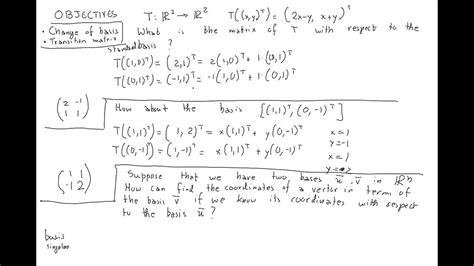 OBJECTIVES T: ℝ² → ℝ² T((x,y)ᵀ) = (2x-y, x+y)ᵀ
• Change of basis What is the matrix of T with respect to the
• Transition matrix standard basis ?
T((1,0)ᵀ) = (2,1)ᵀ = 2(1,0)ᵀ + 1·(0,1)ᵀ
T((0,1)ᵀ) = (-1,1)ᵀ = -1(1,0)ᵀ + 1·(0,1)ᵀ
(2 -1
1 1)
How about the basis {(1,1)ᵀ, (0,-1)ᵀ}
T((1,1)ᵀ) = (1,2)ᵀ = x(1,1)ᵀ + y(0,-1)ᵀ x=1
y=-1
T((0,-1)ᵀ) = (1,-1)ᵀ = x(1,1)ᵀ + y(0,-1)ᵀ x=1
(1 1
-1 2)
Suppose that we have two bases u, v in ℝⁿ
How can find the coordinates of a vector in term of
the basis v if we know its coordinates with respect
to the basis u ?
basis
singular